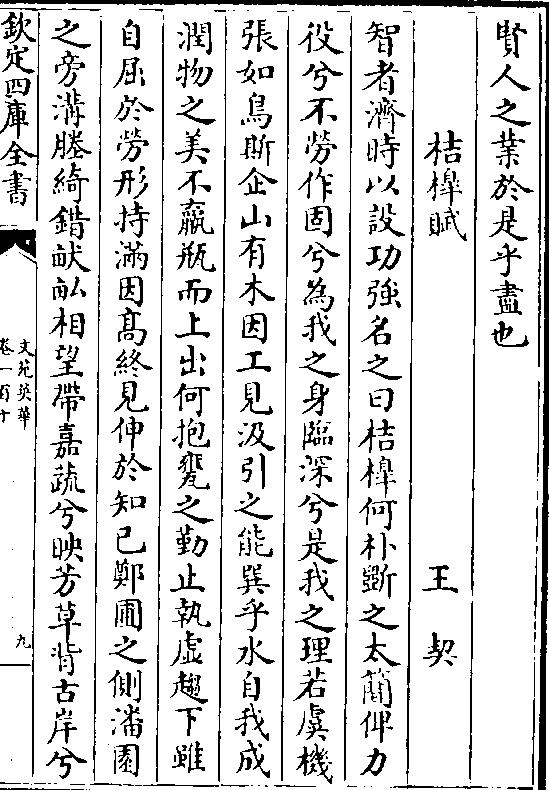 賢人之業於是乎盡也
桔槹賦 王契
智者濟時以設功強名之曰桔槹何朴斵之太簡俾力
役兮不勞作固兮為我之身臨深兮是我之理若虞機
張如鳥斯企山有木因工見汲引之能巽乎水自我成
潤物之美不羸瓶而上出何抱甕之勤止執虛趨下雖
自屈於勞形持滿因髙終見伸於知己鄭圃之側潘園
之旁溝塍綺錯畎畝相望帶嘉蔬兮映芳草背古岸兮
欽定四庫全書
文苑英華
卷一百十
九